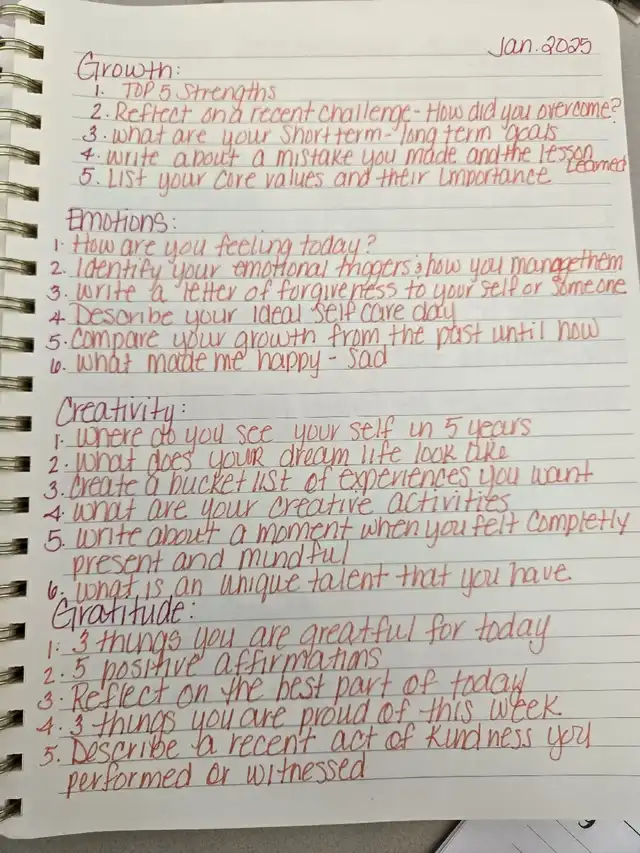 Jan. 2025
Growth:
1. TOP 5 Strengths
2. Reflect on a recent challenge - How did you overcome?
3. what are your short term - long term goals
4. write about a mistake you made and the lesson
Learned
5. List your core values and their importance
Emotions:
1. How are you feeling today?
2. Identify your emotional triggers & how you manage them
3. write a letter of forgiveness to your self or someone
4. Describe your ideal self care day
5. Compare your growth from the past until now
6. what made me happy - sad
Creativity:
1. where do you see your self in 5 years
2. What does your dream life look like
3. Create a bucket list of experiences you want
4. what are your creative activities
5. write about a moment when you felt completly
present and mindful
6. what is an unique talent that you have
Gratitude:
1. 3 things you are greatful for today
2. 5 positive affirmations
3. Reflect on the best part of today
4. 3 things you are proud of this week
5. Describe a recent act of kindness you
performed or witnessed